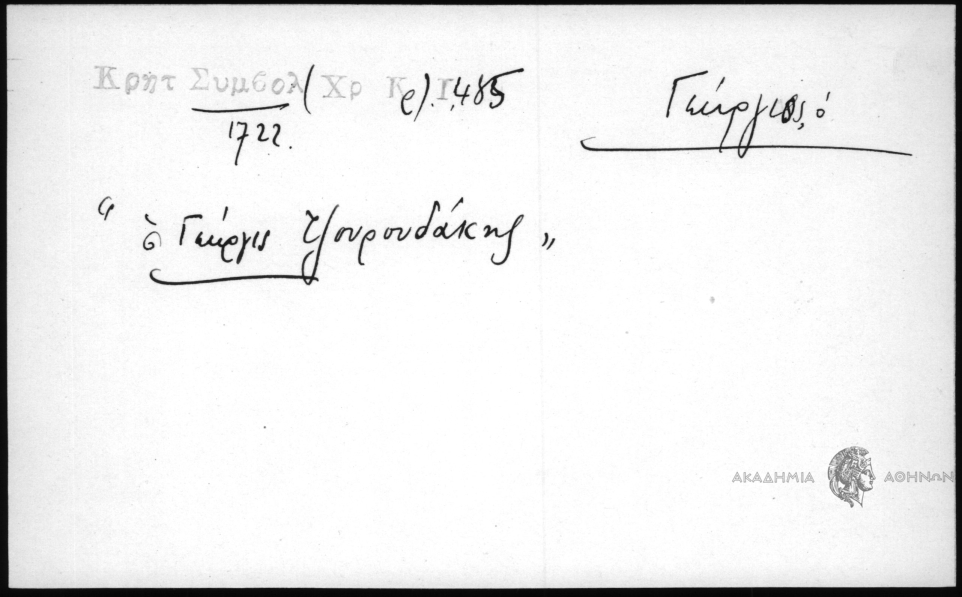 Κρητ Συμβολ ( Χρ Κ ρ). Ι,485
Γεώργιος, ὁ
1722.
“ ὁ Γεώργις Τζουρουδάκης „
ΑΚΑΔΗΜΙΑ ΑΘΗΝΩΝ